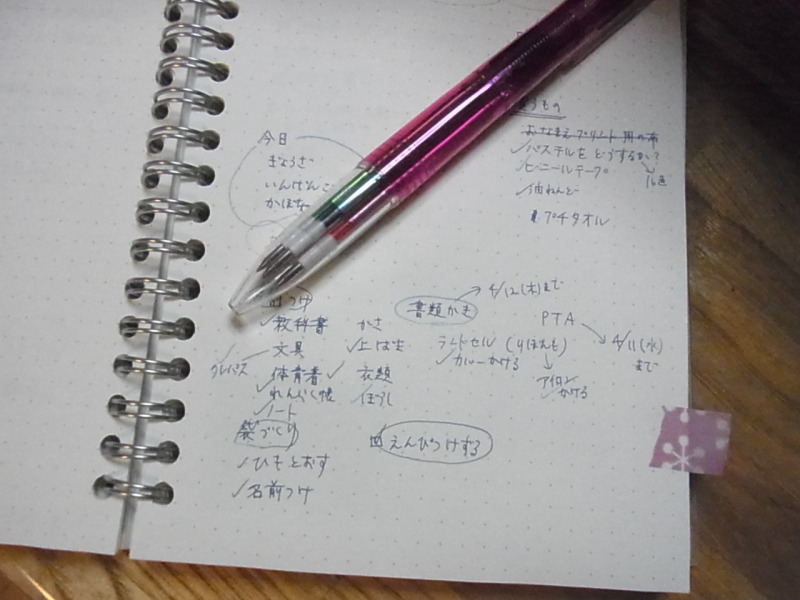 今日
ぎょうざ
いんげんご
かぼな
うもの
おなまえプリント用の布
✓パステルをどうするか?
✓ビニールテープ
16色
✓油ねんど
プチタオル
つけ
✓教科書 かさ
文具 ✓上はき
クレパス
✓体育着 ✓衣類
✓れんらく帳 ぼうし
✓ノート
書類かき → 4/12(木)まで
PTA → 4/11(水)まで
ランドセル(りほんも)
✓カバーかける
アイロンかける
袋づくり
✓ひもとおす
✓名前つけ
えんぴつけずる